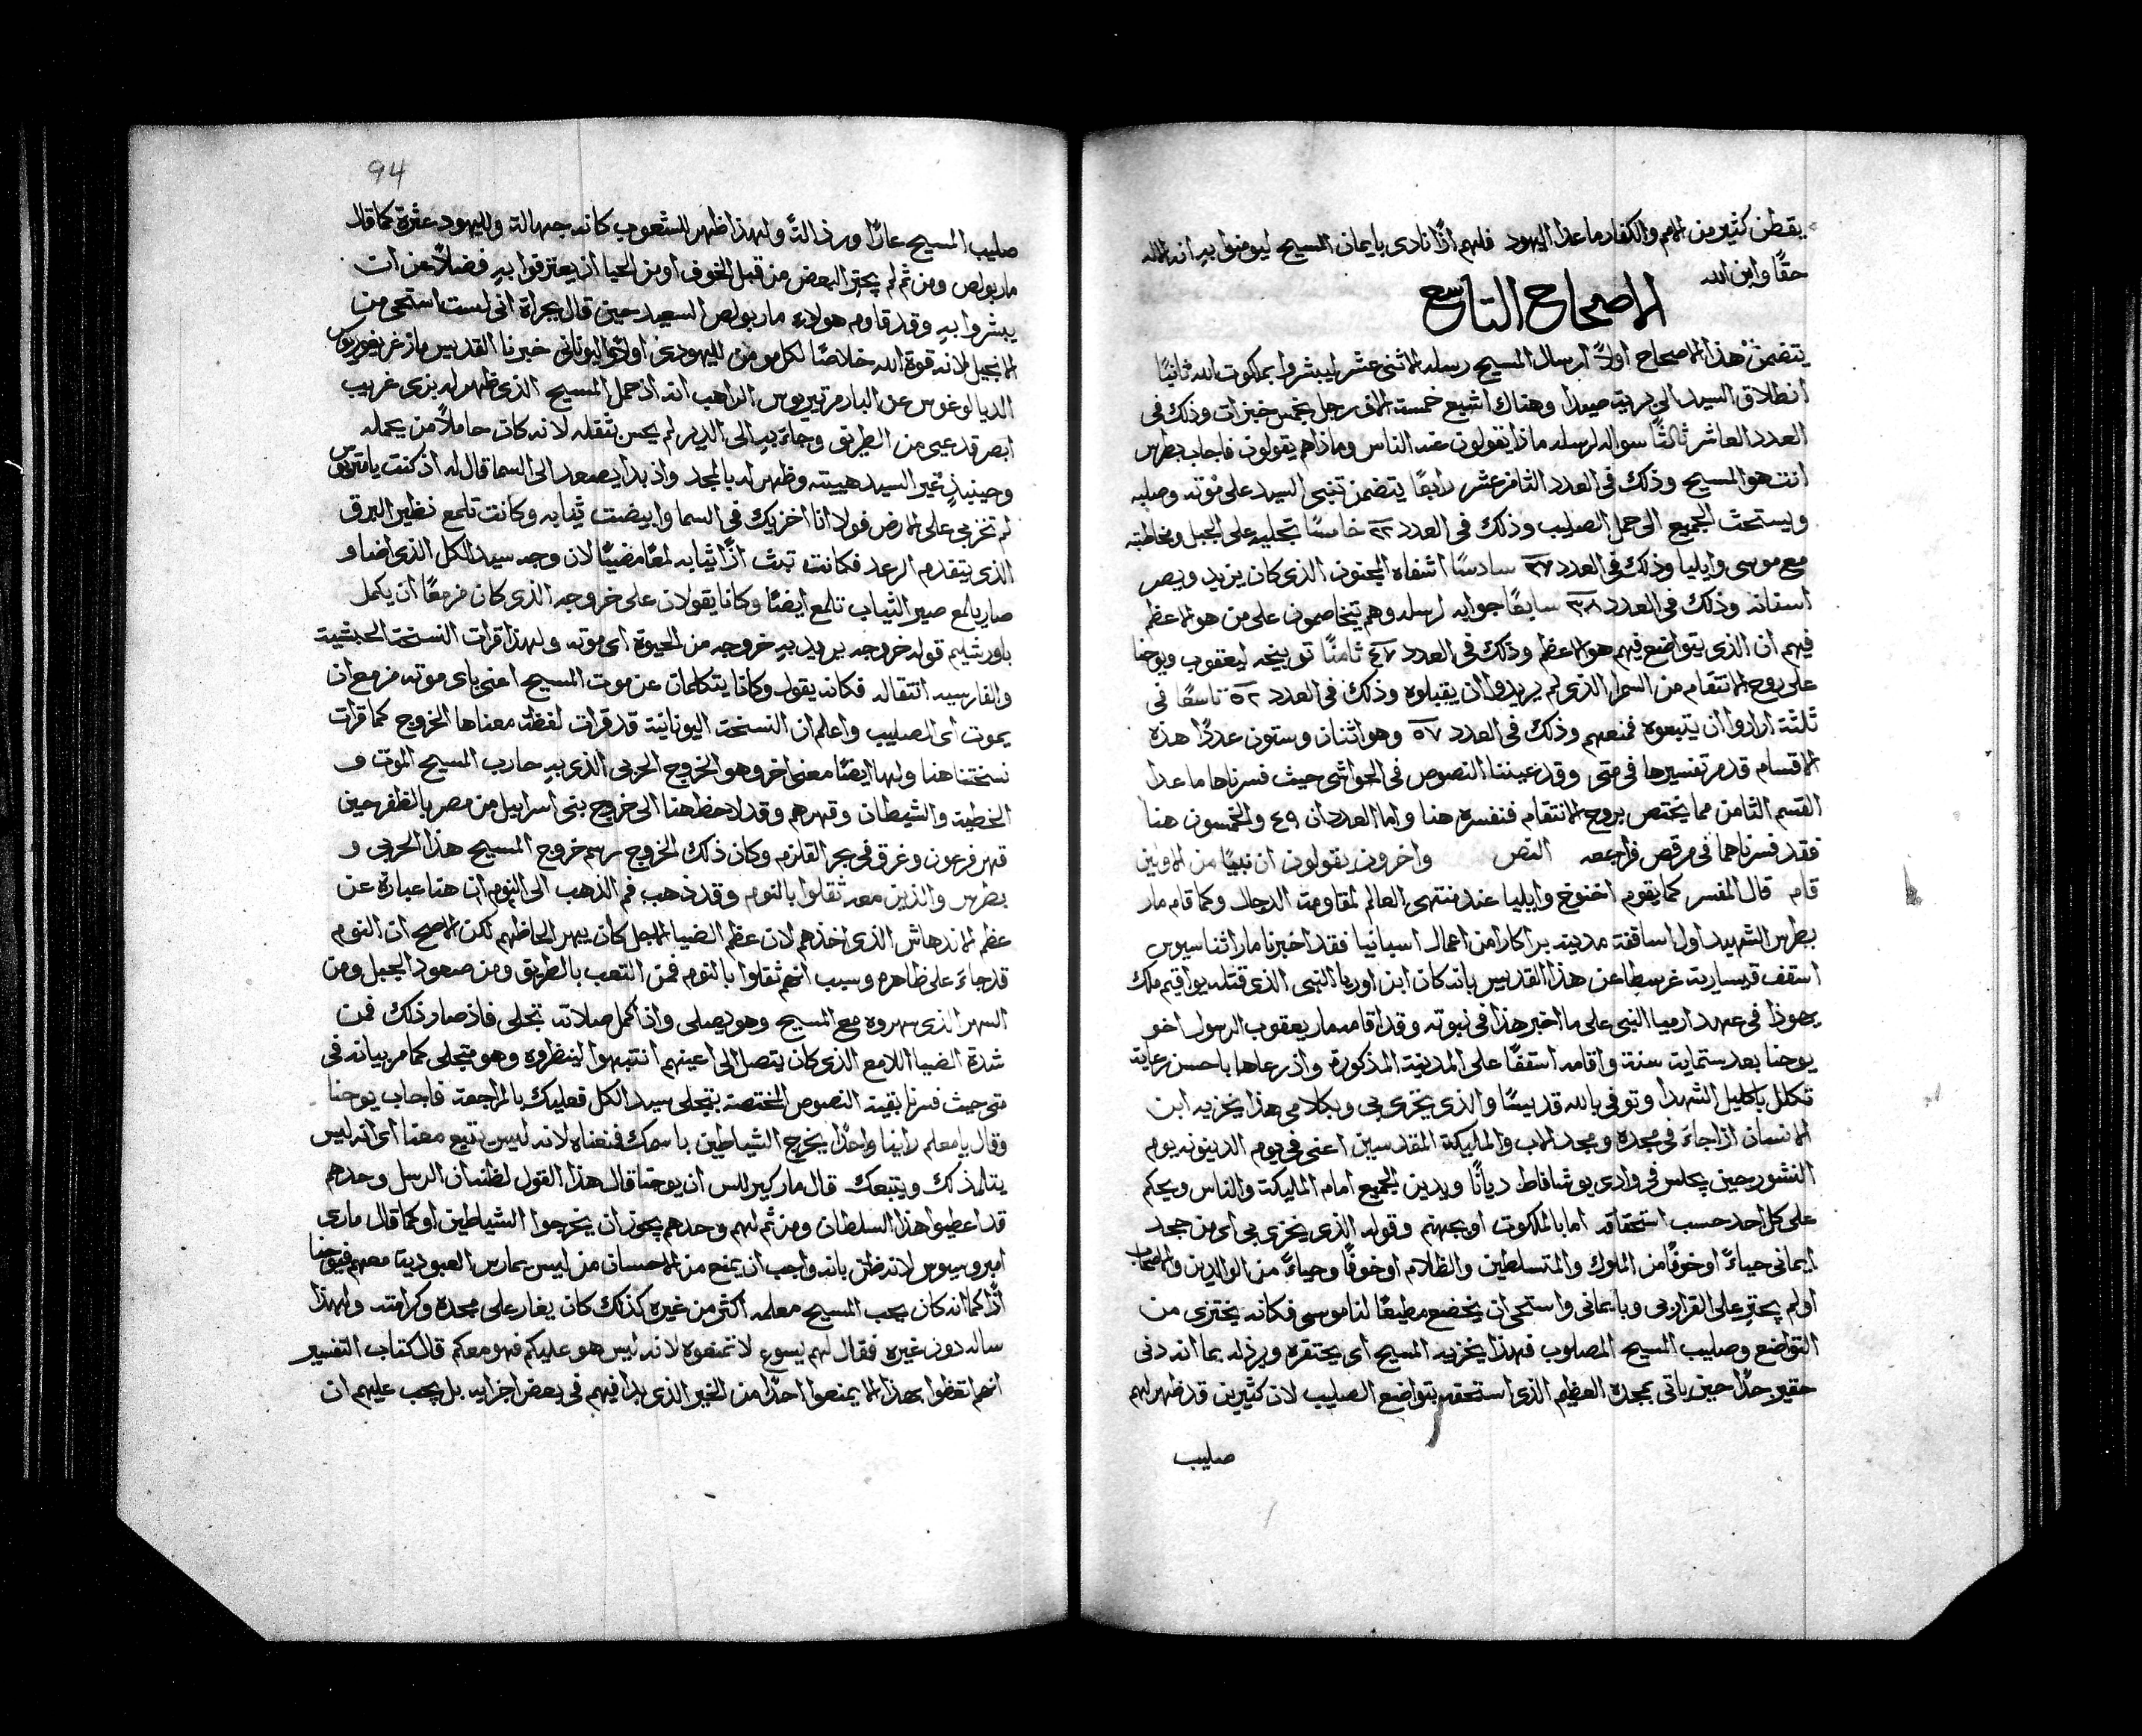 يقطن كثير من الامم والكفار ما عدا اليهود فلهم اذًا نادى بايمان المسيح ليومنوا بهِ انه الاله
حقًا وابن الله
الاصحاح التاسع
يتضمن هذا الاصحاح اولاً ارسال المسيح رسله الاثنى عشر ليبشروا بملكوت الله ثانيًا
انطلاق السيد الى برية صيدا وهناك اشبع خمسة الاف رجل بخمس خبزات وذلك فى
العدد العاشر ثالثًا سواله لرسله ماذا يقولون عنه الناس وماذا هم يقولون فاجاب بطرس
انت هو المسيح وذلك فى العدد الثامن عشر رابعًا يتضمن تنبى السيد على موته وصلبه
ويستحث الجميع الى حمل الصليب وذلك فى العدد ٢٢ خامسًا تجليه على الجبل ومخاطبته
مع موسى وايليا وذلك فى العدد ٢٧ سادسًا اشفاه المجنون الذى كان يزبد ويصر
اسنانه وذلك فى العدد ٣٨ سابعًا جوابه لرسله وهم يتخاصمون على من هو الاعظم
فيهم ان الذى يتواضع فيهم هو الاعظم وذلك فى العدد ٤٧ ثامنًا توبيخه ليعقوب ويوحنا
على روح الانتقام من السمرا الذى لم يريدوا ان يقبلوه وذلك فى العدد ٥٢ تاسعًا فى
ثلثة ارادوا ان يتبعوه فمنعهم وذلك فى العدد ٥٧ وهو اثنان وستون عددًا هذه
الاقسام قد مر تفسيرها فى متى وقد عيننا النصوص فى الحواشى حيث فسرناها ما عدا
القسم الثامن مما يختص بروح الانتقام فنفسره هنا واما العددان ٤٩ والخمسون هنا
فقد فسرناهما فى مرقص فراجعه النص واخرون يقولون ان نبيًا من الاولين
قام قال المفسر كما يقوم اخنوخ وايليا عند منتهى العالم لمقاومة الدجال وكما قام مار
بطرس الشهيد اول اساقفة مدينة براكارا من اعمال اسبانيا فقد اخبرنا مار اثناسيوس
اسقف قيسارية غرسطا عن هذا القديس بانه كان ابن اوريا النبى الذى قتله يواقيم ملك
يهوذا فى عهد ارميا النبى على ما اخبر هذا فى نبوته وقد اقامه مار يعقوب الرسول اخو
يوحنا بعد ستماية سنة واقامه اسقفًا على المدينة المذكورة واذ رعاها باحسن رعاية
تكلل باكليل الشهدا وتوفى بالله قديسًا والذى يخزى بى وبكلامى هذا يخزيه ابن
الانسان اذا جاء فى مجده ومجد الاب والمليكة المقدسين اعنى فى يوم الدينونه يوم
النشور حين يجلس فى وادى يوشافاط ديانًا ويدين الجميع امام المليكة والناس ويحكم
على كل احد حسب استحقاقه اما بالملكوت او بجهنم وقوله الذى يخزى بى اى من جحد
ايمانى حياءً او خوفًا من الملوك والمتسلطين والظلام او خوفًا وحياءً من الوالدين والاصحاب
اولم يجتر على القرار بى وبايمانى واستحى ان يخضع مطيعًا لناموسى فكانه يختزى من
التواضع وصليب المسيح المصلوب فهذا يخزيه المسيح اى يحتقره ويرذله بما انه دنى
حقير جدًا حين ياتى بمجده العظيم الذى استحقه بتواضع الصليب لان كثيرين قد ظهر لهم
صليب
94
صليب المسيح عارًا ورذالةً ولهذا ظهر للشعوب كانه جهالة ولليهود عثرة كما قال
مار بولص ومن ثم لم يجتر البعض من قبل الخوف او من الحيا ان يعترفوا بهِ فضلاً عن ان
يبشروا بهِ وقد قاوم هولاء مار بولص السعيد حين قال بجراة انى لست استحى من
الانجيل لانه قوة الله خلاصًا لكل مومن لليهودى اولاً واليونانى خبرنا القديس مار غريغوريوس
الديالوغوس عن البار مرتيريوس الراهب انه اذ حمل المسيح الذى ظهر له بزى غريب
ابصر قد عيى من الطريق وجاء بهِ الى الدير لم يحس بثقله لانه كان حاملاً من يحمله
وحينيذٍ غير السيد هييته وظهر له بالمجد واذ بدا يصعد الى السما قال له اذ كنت يا مرتيريوس
لم تخز بى على الارض فولا انا اخزيك فى السما وابيضت ثيابه وكانت تلمع نظير البرق
الذى يتقدم الرعد فكانت تبث اذًا ثيابه لمعًا مضيئًا لان وجه سيد الكل الذى اضا و
صار يلمع صير الثياب تلمع ايضًا وكانا يقولان على خروجه الذى كان مزمعًا ان يكمل
باورشليم قوله خروجه يريد بهِ خروجه من الحيوة اى موته ولهذا قرات النسخة الحبشية
والفارسيه انتقاله فكانه يقول وكانا يتكلمان عن موت المسيح اعنى باى موته مزمع ان
يموت اى الصليب واعلم ان النسخة اليونانية قد قرات لفظة معناها الخروج كما قرات
نسختنا هنا ولها ايضًا معنى اخر وهو الخروج الحربى الذى بهِ حارب المسيح الموت و
الخطية والشيطان وقهرهم وقد لاحظ هنا الى خروج بنى اسراييل من مصر بالظفر حين
قهر فرعون وغرق فى بحر القلزم وكان ذلك الخروج رسم خروج المسيح هذا الحربى و
بطرس والذين معه ثقلوا بالنوم وقد ذهب فم الذهب الى النوم ان هنا عبارة عن
عظم الاندهاش الذى اخذهم لان عظم الضيا المجل كان يبهر الحاظهم لكن الاصح ان النوم
قد جاء على ظاهره وسبب انهم ثقلوا بالنوم فمن التعب بالطريق ومن صعود الجبل ومن
السهر الذى سهروه مع المسيح وهو يصلى واذ اكمل صلاته تجلى فاذ صار ذلك فمن
شدة الضيا اللامع الذى كان يتصل الى اعينهم انتبهوا لينظروه وهو متجلى كما مر بيانه فى
متى حيث فسرنا بقية النصوص المختصة بتجلى سيد الكل فعليك بالمراجعة فاجاب يوحنا
وقال يا معلم راينا واحدًا يخرج الشياطين باسمك فمنعناه لانه ليس يتبع معنا اى انه ليس
يتلمذ لك ويتبعك قال مار كيرللس ان يوحنا قال هذا القول لظنه ان الرسل وحدهم
قد اعطيوا هذا السلطان ومن ثم لهم وحدهم يجوز ان يخرجوا الشياطين او كما قال مارى
امبروسيوس لانه ظن بانه واجب ان يمنع من الاحسان من ليس يمارس العبودية معهم فيوحنا
اذًا كما انه كان يحب المسيح معلمه اكثر من غيره كذلك كان يغار على مجده وكرامته ولهذا
ساله دون غيره فقال لهم يسوع لا تمنعوه لانه ليس هو عليكم فهو معكم قال كتاب التفسير
انهم اتعظوا بهذا الا يمنعوا احدًا من الخير الذى بدا فيهم فى بعض اجزايه بل يجب عليهم ان